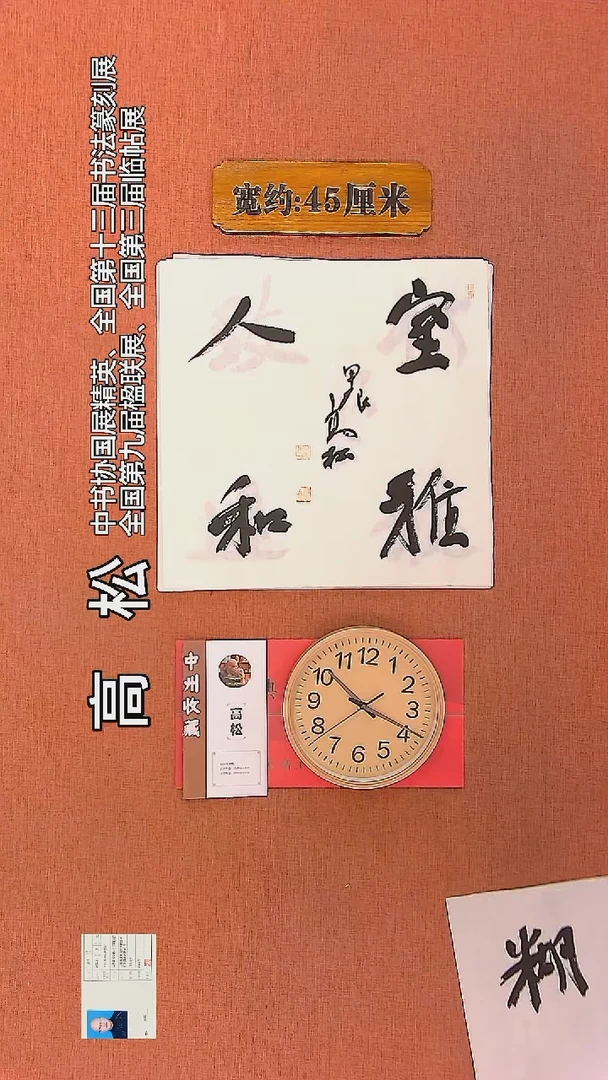 宽约:45厘米
中书协国展精英、全国第十三届书法篆刻展
全国第九届楹联展、全国第三届临帖展
高 松
室雅
人和
甲辰高松
高松
12
1
2
3
4
5
6
7
8
9
10
11
糊